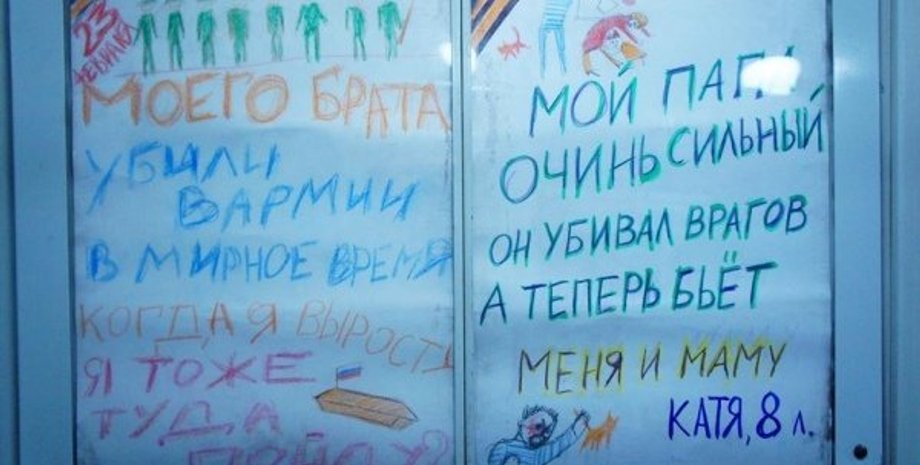 23
ФЕВРАЛЯ
МОЕГО БРАТА
УБИЛИ
ВАРМИИ
В МИРНОЕ ВРЕМЯ
КОГДА Я ВЫРОСТУ
Я ТОЖЕ
ТУДА
ПОЙДУ?
МОЙ ПАПА
ОЧИНЬ СИЛЬНЫЙ
ОН УБИВАЛ ВРАГОВ
А ТЕПЕРЬ БЬЁТ
МЕНЯ И МАМУ
КАТЯ, 8 Л.